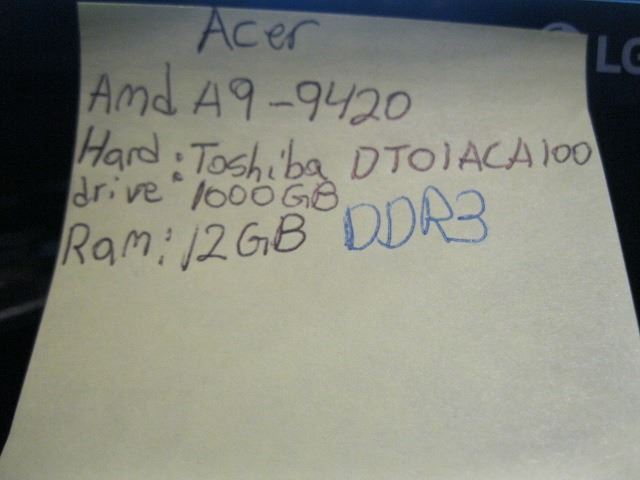 Acer
LG
Amd A9-9420
Hard : Toshiba DT01ACA100
drive : 1000GB
Ram: 12GB DDR3